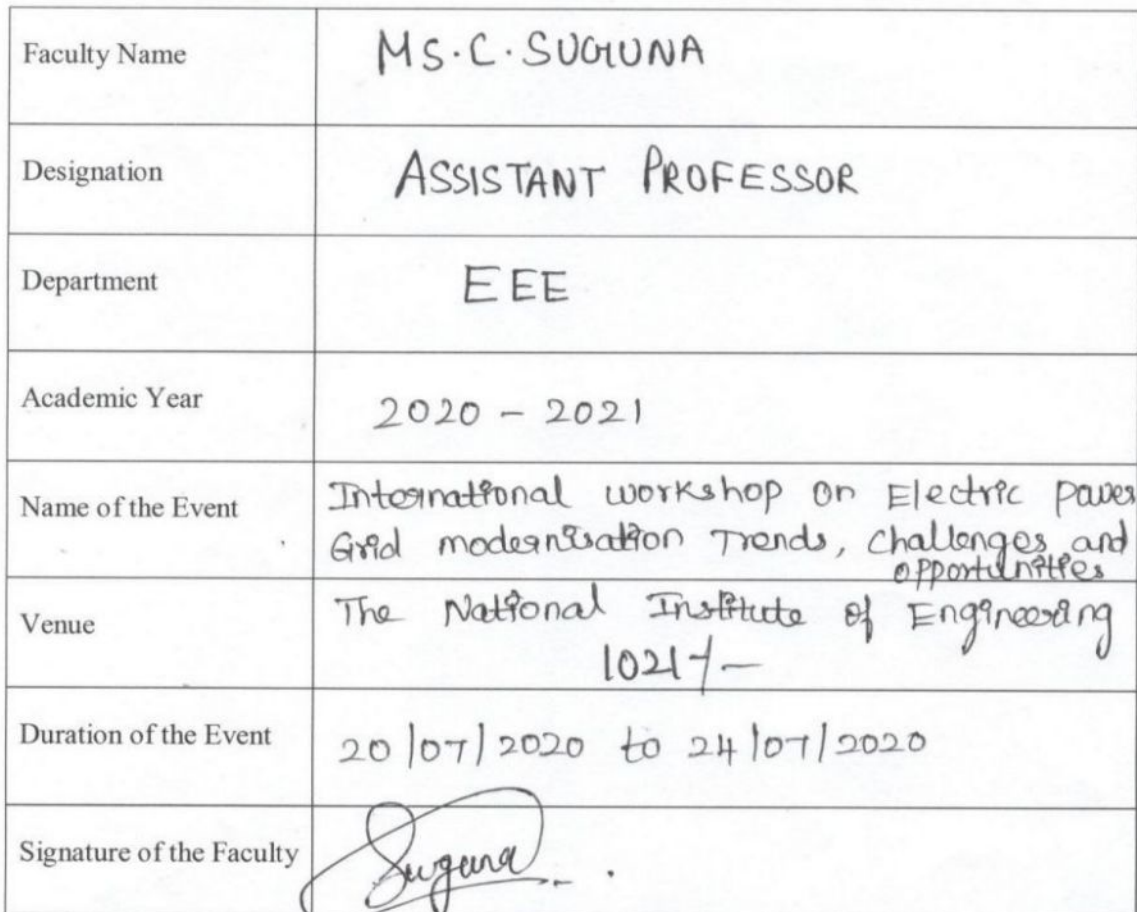 Faculty Name MS. C. SUGUNA
Designation ASSISTANT PROFESSOR
Department EEE
Academic Year 2020 - 2021
Name of the Event International workshop on Electric power
Grid modernisation Trends, challenges and
opportunities
Venue The National Institute of Engineering
1021/-
Duration of the Event 20/07/2020 to 24/07/2020
Signature of the Faculty Suguna